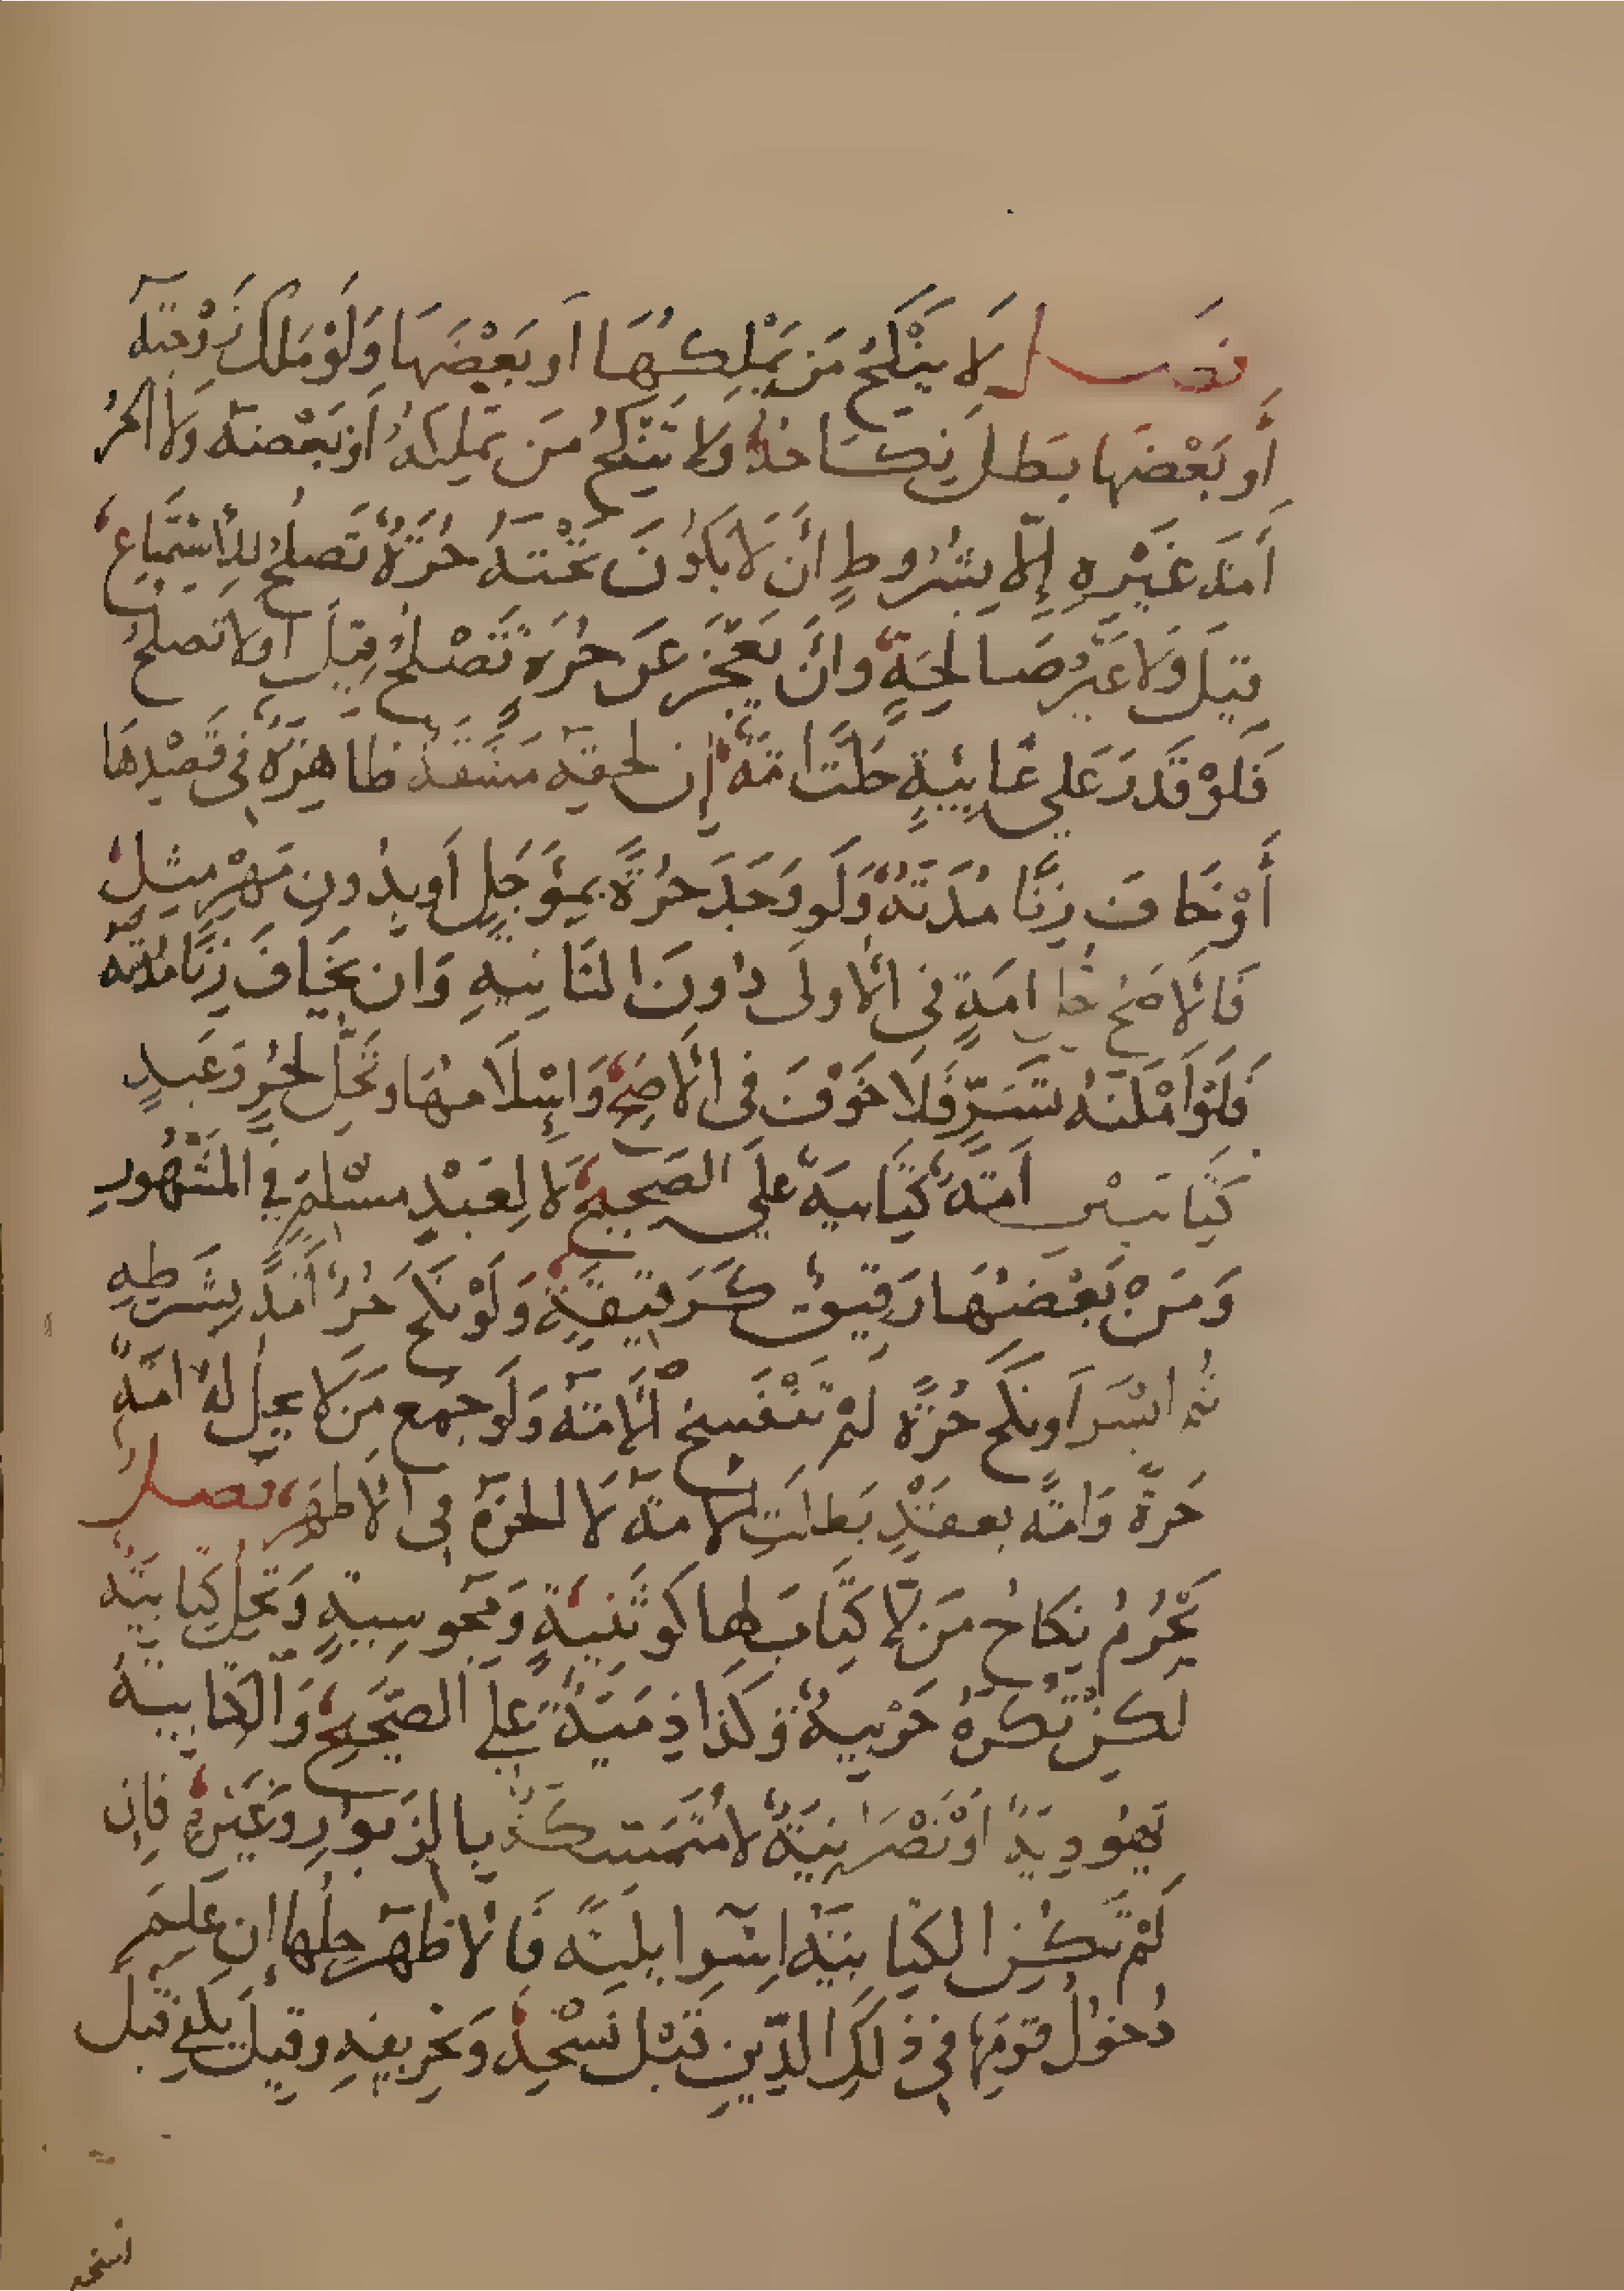 فصل لَا يَنْكِحُ مَن يَمْلِكُهَا اَو بَعْضَهَا وَلَوْ مَلَكَ زَوْجَتَهُ
أَو بَعْضَهَا بَطَلَ نِكَاحُهُ وَلا تَنْكِحُ مَن تَمْلِكُهُ اَوْ بَعْضَهُ وَلَا الحُرُّ
اَمَةَ غَيْرِهِ إِلَّا بِشُرُوطٍ اَن لَا يَكُونَ تَحْتَهُ حُرَّةٌ تَصلُحُ لِلاِسْتِمْتَاعِ
قِيلَ وَلَا غَيْرُ صَالِحَةٍ وَاَنْ يَعْجِزَ عَن حُرَّةٍ تَصْلُحُ قِيلَ اَو لَا تَصلُحُ
فَلَوْ قَدَرَ عَلى غَايِبَةٍ حَلَّت اَمَةٌ إِن لحقه مَشَقَّة ظَاهِرَةٌ فِى قَصْدِهَا
أَوْ خَافَ زِنًا مُدَّتَهُ وَلَو وَجَدَ حُرَّةً بِمُؤَجَّلٍ اَو بِدُونِ مَهْرِ مِثْلٍ
فَالاَصَحُّ حِل اَمَةٍ فِى الاُولَى دُونَ الثَّانِيَةِ وَان يَخَافَ زِنًا
فَلَوْ اَمْكَنَهُ تَسَرٍّ فَلَا خَوْفَ فِى الاَصَحِّ وَإِسْلَامُهَا وَتَحِلُّ لحُرٍّ وَعَبدٍ
كِتَابيَّيْنِ اَمَةٌ كِتَابيةٌ عَلَى الصَحِيحِ لَا لِعَبْدٍ مُسْلِمٍ فِي المَشْهُورِ
وَمَنْ بَعْضُهَا رَقِيقٌ كَرَقِيقَةٍ وَلَوْ نَكَحَ حُرٌّ اَمَةً بِشَرطِهِ
ثُمَّ ايْسَرَ اَو نَكَحَ حُرَّةً لَمْ تَنْفَسِخِ الاَمَةُ وَلَو جَمَعَ مَن لَا يحِلُّ لَهُ اَمَةٌ
حُرَّةً وَاَمَةً بعقدٍ بَطَلَتِ الامَةُ لَا الحُرَّةُ فِى الاَظهَرِ فصل
يَحْرُمُ نِكَاحُ مَن لَّا كِتَابَ لَهَا كَوَثَنِيَّةٍ وَمَجُوسِيَّةٍ وَتَحِلُّ كِتَابِيَّةٌ
لَكِنْ تُكْرَهُ حَرْبِيةٌ وَكَذَا ذِمِّيَّةٌ عَلَى الصَّحِيحِ وَالْكِتَابِيَّةُ
يَهُودِيَّةٌ اَوْ نَصْرَانِيَّةٌ لا مُتَمَسِّكَةٌ بِالزَّبُورِ وَغَيْرِهِ فَاِن
لَمْ تَكُنِ الكِتَابِيَّةُ اِسْرَايلِيَّةً فَالاَظهَرُ حِلُّهَا اِن عَلِمَ
دُخُولُ قَوْمِهَا فِي ذَلِكَ الدِّينِ قَبْلَ نَسْخِهِ وَتَحْرِيفِهِ وَقِيلَ يَكْفِي قَبْلَ
نسخه